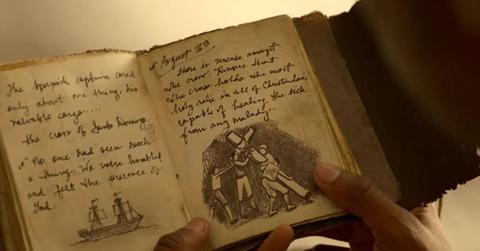 The Spanish captain cared
only about one thing, his
valuable cargo....
the cross of Santo Domingo
No one had seen such
a thing. We were humbled
and felt the presence of
God.
August 16th
There is unease amongst
the crew. Rumors that
the cross holds the most
holy relic in all of Christendom,
capable of healing the sick
from any malady...